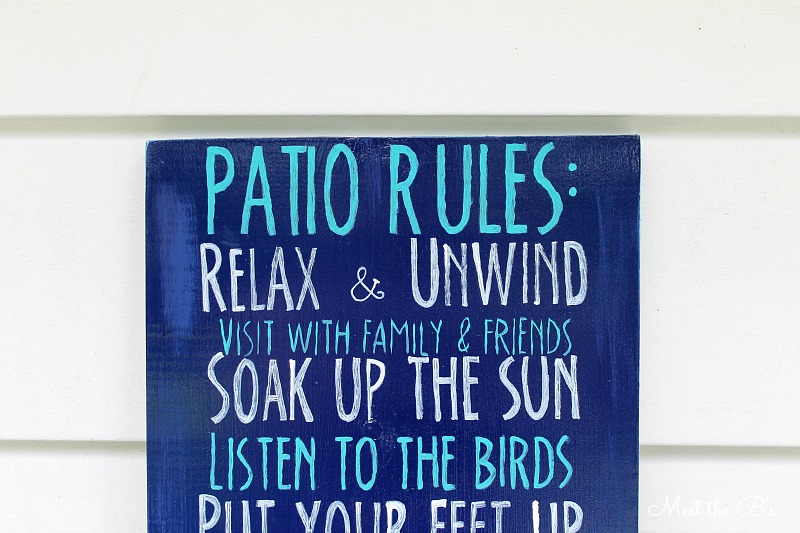 PATIO RULES:
RELAX & UNWIND
VISIT WITH FAMILY & FRIENDS
SOAK UP THE SUN
LISTEN TO THE BIRDS
PUT YOUR FEET UP
Meet the B's